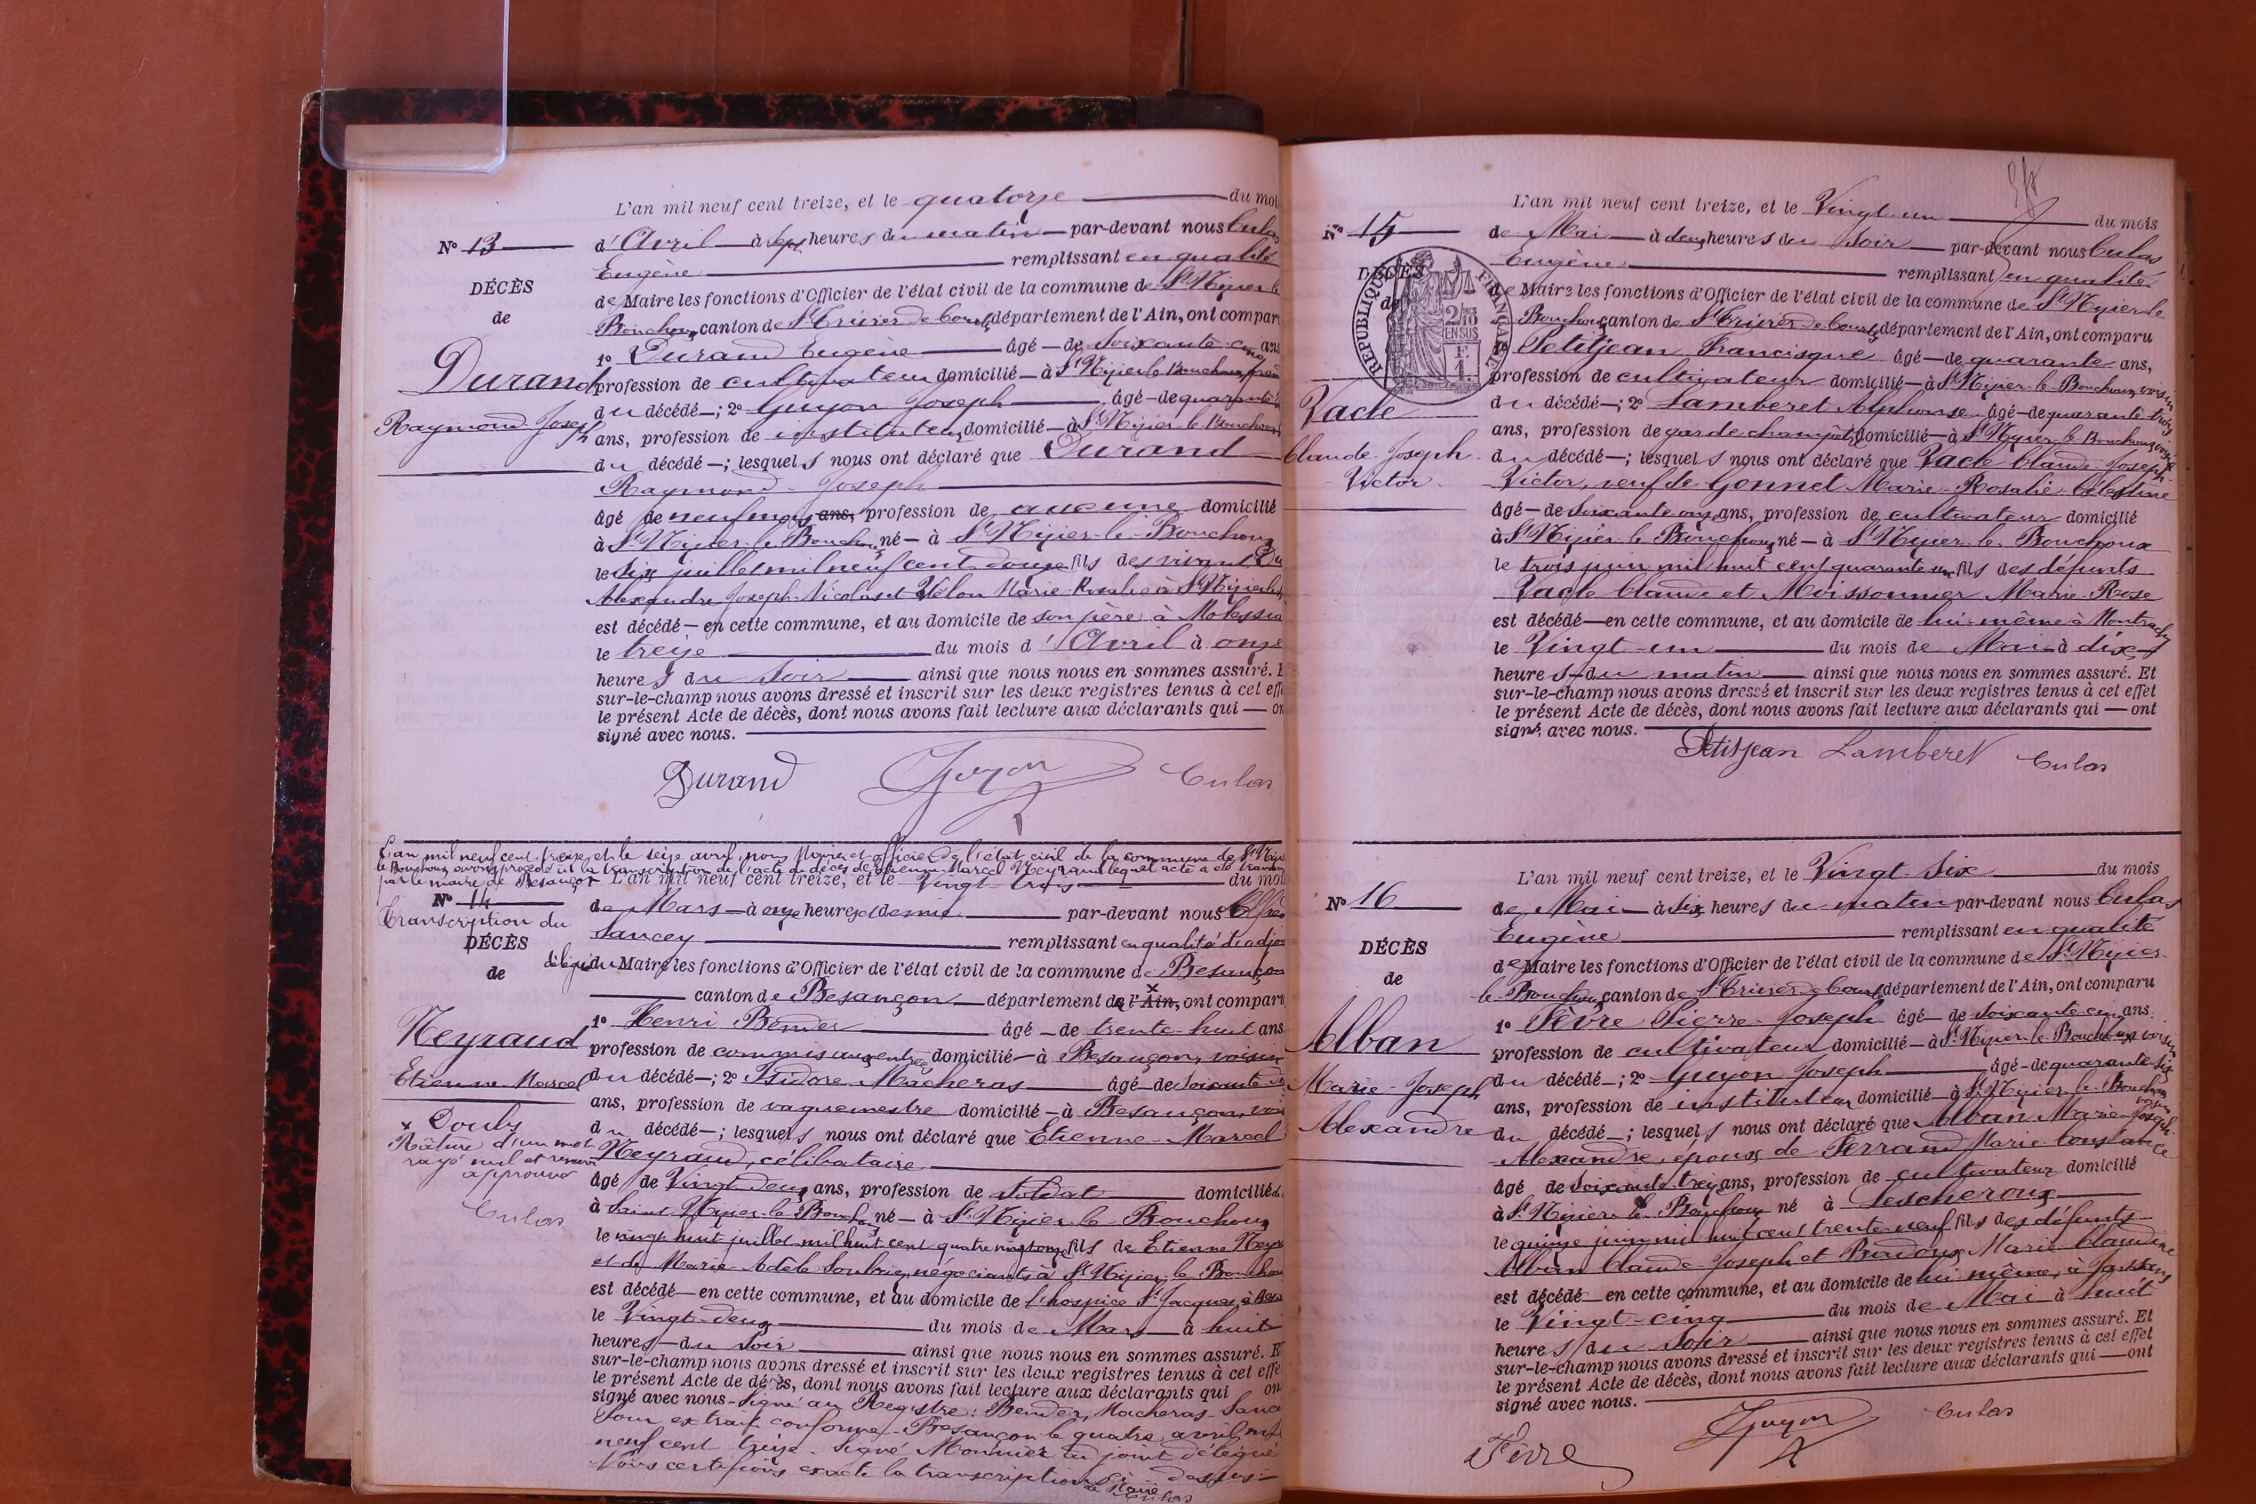 L'an mil neuf cent treize, et le quatorze du moi
N° 13 d'Avril à sept heures du matin par-devant nous Culas
Eugène remplissant en qualité
DÉCÈS de Maire les fonctions d'Officier de l'état civil de la commune de St Nizier le
de Bouchoux canton de St Trivier de Courtes département de l'Ain, ont compar
1° Durand Eugène âgé de soixante-cinq ans
Durand profession de cultivateur domicilié à St Nizier le Bouchoux
du décédé ; 2° Guyon Joseph âgé de quarante
Raymond Joseph ans, profession de instituteur domicilié à St Nizier le Bouchoux
du décédé ; lesquels nous ont déclaré que Durand
Raymond Joseph
âgé de neuf mois ans, profession de aucune domicilié
à St Nizier le Bouchoux né à St Nizier-le-Bouchoux
le six juillet mil neuf cent douze fils des vivants Du
Alexandre Joseph Nicolas et Vélon Marie Rosalie à St Nizier le
est décédé en cette commune, et au domicile de son père à
le treize du mois d'Avril à onze
heures du soir ainsi que nous nous en sommes assuré. E
sur-le-champ nous avons dressé et inscrit sur les deux registres tenus à cet effe
le présent Acte de décès, dont nous avons fait lecture aux déclarants qui on
signé avec nous.
Durand Guyon Culas
L'an mil neuf cent treize et le seize avril, nous Maire et officier de l'état civil de la commune de St Nizie
le Bouchoux avons procédé à la transcription de l'acte de décès de Etienne Marcel Neyraud lequel acte a été transm
par le maire de Besançon
L'an mil neuf cent treize, et le Vingt-trois du moi
N° 14 de Mars à onze heures et demie par-devant nous
Transcription du
Sancey remplissant en qualité d'adjoi
DÉCÈS délégué du Maire les fonctions d'Officier de l'état civil de la commune de Besançon
de canton de Besançon département de l'Ain, ont comparu
1° Henri Bender âgé de trente-huit ans
Neyraud profession de commis aux entrées domicilié à Besançon, voisin
Etienne Marcel du décédé ; 2° Isidore Macheras âgé de soixante
ans, profession de vaguemestre domicilié à Besançon, voi
x Doubs du décédé ; lesquels nous ont déclaré que Etienne-Marcel
Râture d'un mot Neyraud, célibataire
rayé nul et renvoi
approuvé âgé de Vingt-deux ans, profession de Soldat domicilié
Culas à Saint Nizier-le-Bouchoux né à St Nizier-le-Bouchoux
le vingt huit juillet mil huit cent quatre vingt onze fils de Etienne Neyr
et de Marie Adèle négociants à St Nizier le Bouchou
est décédé en cette commune, et au domicile de l'hospice St Jacques, à Besa
le Vingt-deux du mois de Mars à huit
heures du soir ainsi que nous nous en sommes assuré. E
sur-le-champ nous avons dressé et inscrit sur les deux registres tenus à cet effe
le présent Acte de décès, dont nous avons fait lecture aux déclarants qui on
signé avec nous - Signé au Registre : Bender, Macheras - Sanc
Pour extrait conforme - Besançon le quatre avril mil
neuf cent treize - Signé Monnier adjoint délégué
Nous certifions exacte la transcription ci-dessus :
Le Maire
Culas
L'an mil neuf cent treize, et le Vingt-un du mois
N° 15 de Mai à deux heures du soir par-devant nous Culas
Eugène remplissant en qualité
DÉCÈS de Maire les fonctions d'Officier de l'état civil de la commune de St Nizier-le
de Bouchoux canton de St Trivier de Courtes département de l'Ain, ont comparu
RÉPUBLIQUE FRANÇAISE
2/10 EN SUS
F. 1.
1° Petitjean Francisque âgé de quarante ans,
profession de cultivateur domicilié à St Nizier-le-Bouchoux voisin
Vacle du décédé ; 2° Lamberet Alphonse âgé de quarante trois
ans, profession de garde champêtre domicilié à St Nizier le Bouchoux voisin
Claude-Joseph du décédé ; lesquels nous ont déclaré que Vacle Claude-Joseph-
Victor Victor, veuf de Gonnet Marie-Rosalie Célestine
âgé de soixante onze ans, profession de cultivateur domicilié
à St Nizier le Bouchoux né à St Nizier le Bouchoux
le trois juin mil huit cent quarante un fils des défunts
Vacle Claude et Moissonnier Marie-Rose
est décédé en cette commune, et au domicile de lui-même à
le Vingt-un du mois de Mai à dix
heures du matin ainsi que nous nous en sommes assuré. Et
sur-le-champ nous avons dressé et inscrit sur les deux registres tenus à cet effet
le présent Acte de décès, dont nous avons fait lecture aux déclarants qui ont
signé avec nous.
Petitjean Lamberet Culas
L'an mil neuf cent treize, et le Vingt-six du mois
N° 16 de Mai à six heures du matin par-devant nous Culas
Eugène remplissant en qualité
DÉCÈS de Maire les fonctions d'Officier de l'état civil de la commune de St Nizier-
de le Bouchoux canton de St Trivier de Courtes département de l'Ain, ont comparu
1° Fèvre Pierre-Joseph âgé de soixante cinq ans.
Alban profession de cultivateur domicilié à St Nizier-le-Bouchoux voisin
Marie-Joseph du décédé ; 2° Guyon Joseph âgé de quarante-six
ans, profession de instituteur domicilié à St Nizier-le-Bouchoux voisin
Alexandre du décédé ; lesquels nous ont déclaré que Alban Marie-Joseph-
Alexandre, époux de Ferrand Marie Constance
âgé de soixante-treize ans, profession de cultivateur domicilié
à St Nizier le Bouchoux né à Lescheroux
le quinze juin mil huit cent trente-neuf fils des défunts
Alban Claude-Joseph et Marie-Claudine
est décédé en cette commune, et au domicile de lui-même, à
le Vingt-cinq du mois de Mai à huit
heures du soir ainsi que nous nous en sommes assuré. Et
sur-le-champ nous avons dressé et inscrit sur les deux registres tenus à cet effet
le présent Acte de décès, dont nous avons fait lecture aux déclarants qui ont
signé avec nous.
Fèvre Guyon Culas